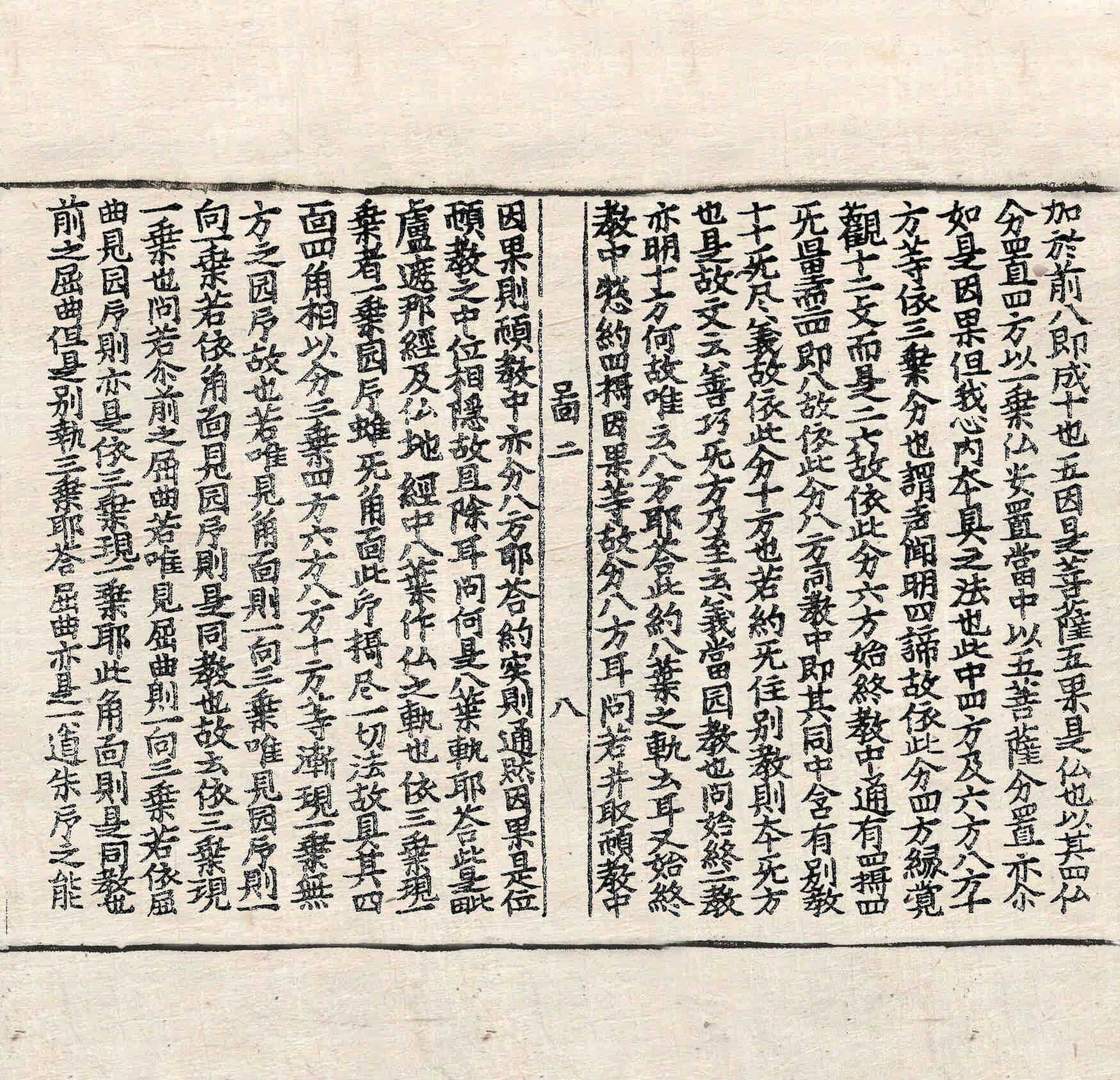 加於前八即成十也五因是菩薩五果是仏也以其四仏
分置四方以一乗仏安置當中以五菩薩分置亦尒
如是因果但我心內本具之法也此中四方及六方八方十
方等依三乗分也謂声聞明四諦故依此分四方縁覚
觀十二支而是二六故依此分六方始終教中通有四攝四
无量而即八故依此分八方同教中即其同中含有別教
十十无尽義故依此分十方也若約无住別教則本无方
也是故文云善巧无方乃至云義當园教也问始終二教
亦明十方何故唯云八方耶荅此約八葉之軌云耳又始終
教中愁約四攝因果等故分八方耳问若并取頓教中
啚二 八
因果則頓教中亦分八方耶荅約実則通然因果是位
頓教之中位相隱故且除耳问何是八葉軌耶荅此是毗
盧遮那經及仏地經中八葉作仏之軌也依三乗現一
乗者一乗园卬雖无角面此卬攝尽一切法故具其四
面四角相以分三乗四方六方八方十方等漸現一乗無
方之园卬故也若唯見角面則一向三乗唯見园卬則一
向一乗若依角面見园卬則是同教也故云依三乗現
一乗也问若尒前之屈曲若唯見屈曲則一向三乗若依屈
曲見园卬則亦是依三乗現一乗耶此角面則是同教也
前之屈曲但是別執三乗耶荅屈曲亦是一道朱卬之能